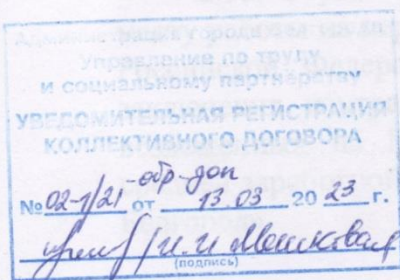 Администрация городского округа
Управление по труду
и социальному партнерству
УВЕДОМИТЕЛЬНАЯ РЕГИСТРАЦИЯ
КОЛЛЕКТИВНОГО ДОГОВОРА
№ 02-1/21-обр-доп от 13.03 20 23 г.
(подпись)